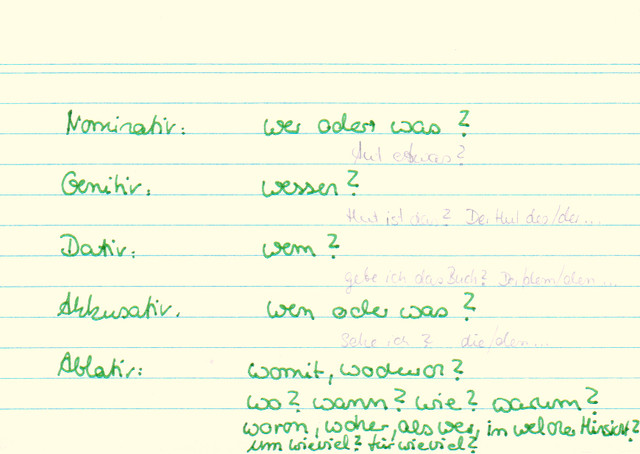 Nominativ: wer oder was?
tut etwas?
Genitiv: wessen?
Hut ist das? Der Hut des/der...
Dativ: wem?
gebe ich das Buch? dem/den...
Akkusativ: wen oder was?
sehe ich? die/den...
Ablativ: womit, wodurch?
wo? wann? wie? warum?
woran, woher, als wer, in welcher Hinsicht?
um wieviel? für wieviel?